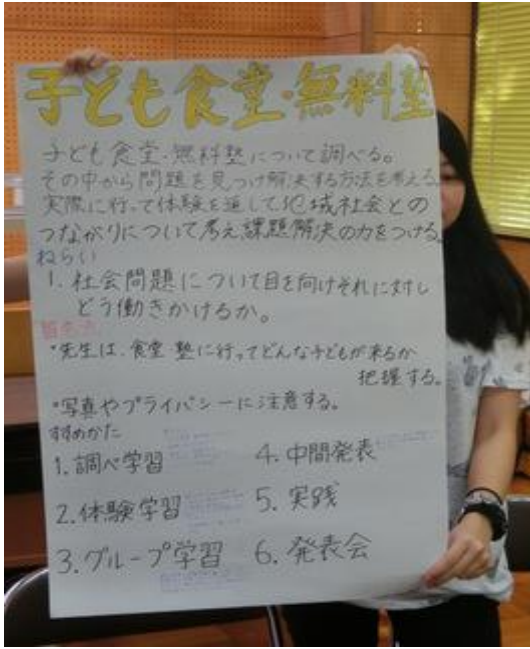 子ども食堂・無料塾
子ども食堂・無料塾について調べる。
その中から問題を見つけ解決する方法を考える。
実際に行って体験を通して地域社会との
つながりについて考え課題解決の力をつける。
ねらい
1. 社会問題について目を向けそれに対し
どう働きかけるか。
留意点
・先生は、食堂 塾に行ってどんな子どもが来るか
把握する。
・写真やプライバシーに注意する。
すすめかた
1. 調べ学習
2. 体験学習
3. グループ学習
4. 中間発表
5. 実践
6. 発表会